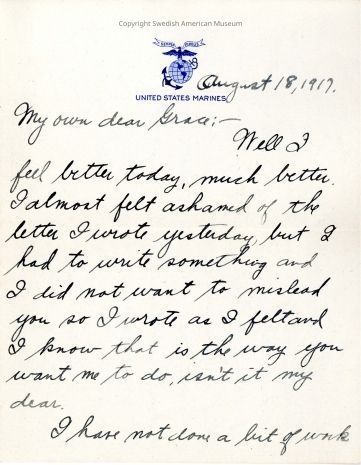 Copyright Swedish American Museum
SEMPER FIDELIS
August 18, 1917.
UNITED STATES MARINES
My own dear Grace:—
Well I
feel better today, much better.
I almost felt ashamed of the
letter I wrote yesterday, but I
had to write something and
I did not want to mislead
you so I wrote as I felt and
I know that is the way you
want me to do, isn't it my
dear.
I have not done a bit of work